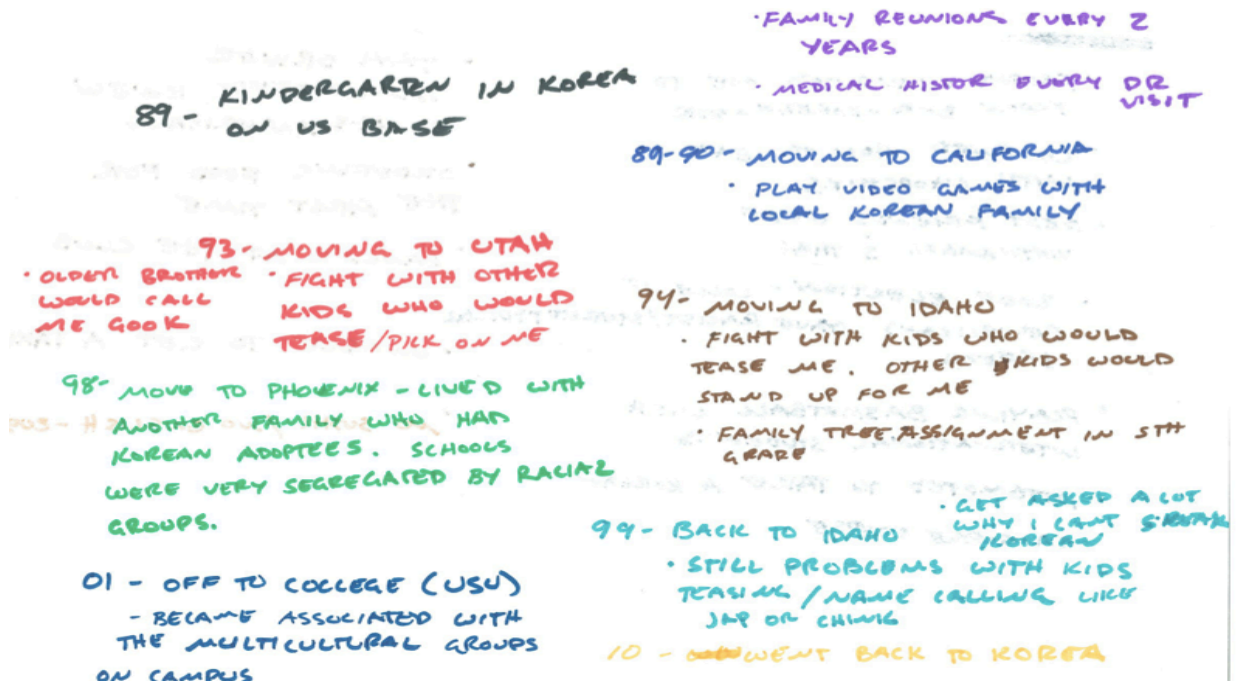 · FAMILY REUNIONS EVERY 2
YEARS
· MEDICAL HISTOR EVERY DR
VISIT
89 - KINDERGARTEN IN KOREA
ON US BASE
89-90 - MOVING TO CALIFORNIA
· PLAY VIDEO GAMES WITH
LOCAL KOREAN FAMILY
93 - MOVING TO UTAH
· OLDER BROTHER
WOULD CALL
ME GOOK
· FIGHT WITH OTHER
KIDS WHO WOULD
TEASE/PICK ON ME
94 - MOVING TO IDAHO
· FIGHT WITH KIDS WHO WOULD
TEASE ME. OTHER KIDS WOULD
STAND UP FOR ME
· FAMILY TREE ASSIGNMENT IN 5TH
GRADE
98 - MOVE TO PHOENIX - LIVED WITH
ANOTHER FAMILY WHO HAD
KOREAN ADOPTEES. SCHOOLS
WERE VERY SEGREGATED BY RACIAL
GROUPS.
99 - BACK TO IDAHO
· GET ASKED A LOT
WHY I CANT SPEAK
KOREAN
· STILL PROBLEMS WITH KIDS
TEASING / NAME CALLING LIKE
JAP OR CHINK
01 - OFF TO COLLEGE (USU)
- BECAME ASSOCIATED WITH
THE MULTICULTURAL GROUPS
ON CAMPUS
10 - WENT BACK TO KOREA